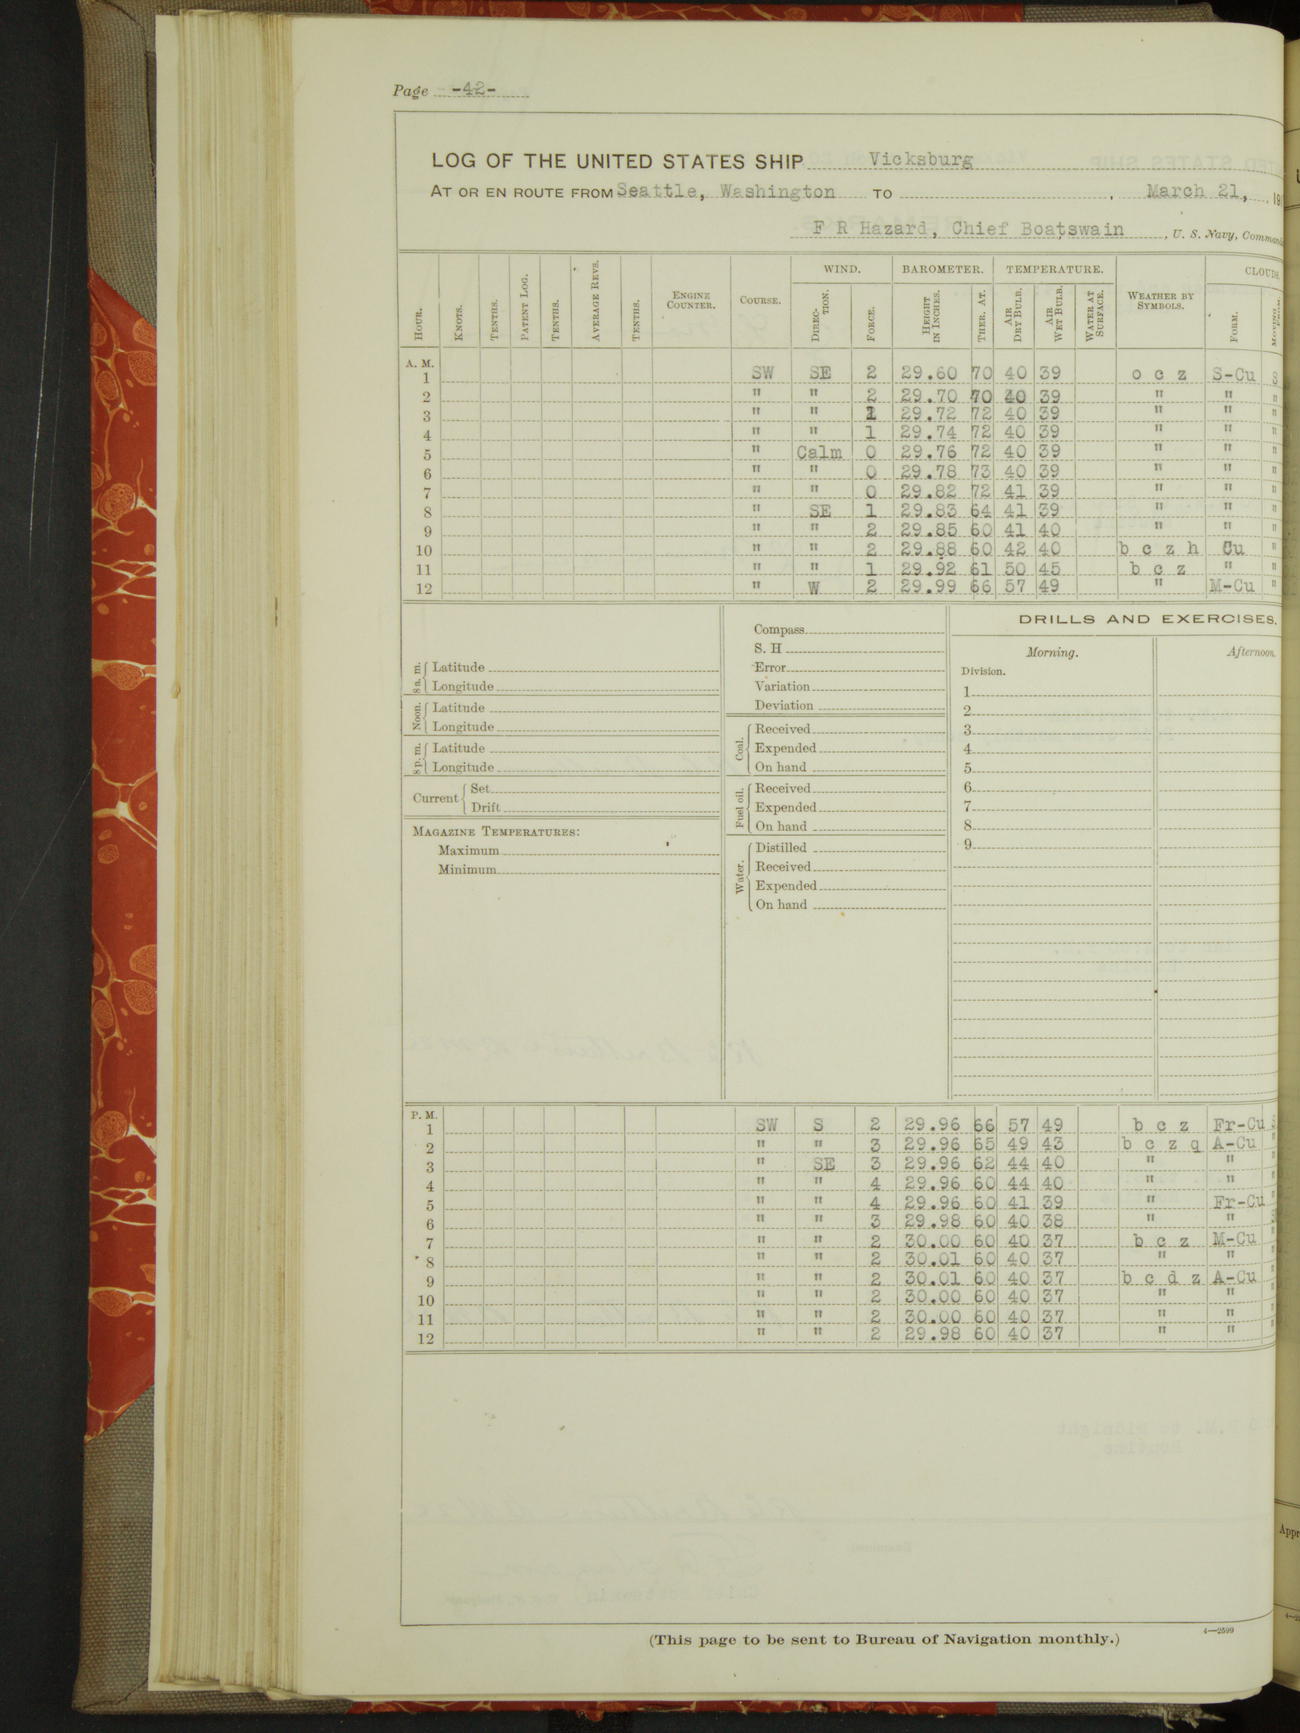 Page -42-
LOG OF THE UNITED STATES SHIP Vicksburg
AT OR EN ROUTE FROM Seattle, Washington TO , March 21, , 19
F R Hazard, Chief Boatswain , U. S. Navy,
WIND. BAROMETER. TEMPERATURE.
HOUR. KNOTS. TENTHS. PATENT LOG. TENTHS. AVERAGE REVS. TENTHS. ENGINE COUNTER. COURSE. DIRECTION. FORCE. HEIGHT IN INCHES. THER. AT. AIR DRY BULB. AIR WET BULB. WATER AT SURFACE. WEATHER BY SYMBOLS. FORM.
A. M.
1 SW SE 2 29.60 70 40 39 o c z S-Cu S
2 " " 2 29.70 70 40 39 " " "
3 " " 1 29.72 72 40 39 " " "
4 " " 1 29.74 72 40 39 " " "
5 " Calm 0 29.76 72 40 39 " " "
6 " " 0 29.78 73 40 39 " " "
7 " " 0 29.82 72 41 39 " " "
8 " SE 1 29.83 64 41 39 " " "
9 " " 2 29.85 60 41 40 " " "
10 " " 2 29.88 60 42 40 b c z h Cu "
11 " " 1 29.92 61 50 45 b c z " "
12 " W 2 29.99 66 57 49 " M-Cu "
8 a. m. Latitude
Longitude
Noon. Latitude
Longitude
8 p. m. Latitude
Longitude
Current Set
Drift
MAGAZINE TEMPERATURES:
Maximum
Minimum
Compass
S. H
Error
Variation
Deviation
Coal. Received
Expended
On hand
Fuel oil. Received
Expended
On hand
Water. Distilled
Received
Expended
On hand
DRILLS AND EXERCISES.
Morning. Afternoon.
Division.
1
2
3
4
5
6
7
8
9
P. M.
1 SW S 2 29.96 66 57 49 b c z Fr-Cu S
2 " " 3 29.96 65 49 43 b c z q A-Cu "
3 " SE 3 29.96 62 44 40 " " "
4 " " 4 29.96 60 44 40 " " "
5 " " 4 29.96 60 41 39 " Fr-Cu "
6 " " 3 29.98 60 40 38 " "
7 " " 2 30.00 60 40 37 b c z M-Cu "
8 " " 2 30.01 60 40 37 " " "
9 " " 2 30.01 60 40 37 b c d z A-Cu "
10 " " 2 30.00 60 40 37 " " "
11 " " 2 30.00 60 40 37 " " "
12 " " 2 29.98 60 40 37 " " "
(This page to be sent to Bureau of Navigation monthly.)
4—2599